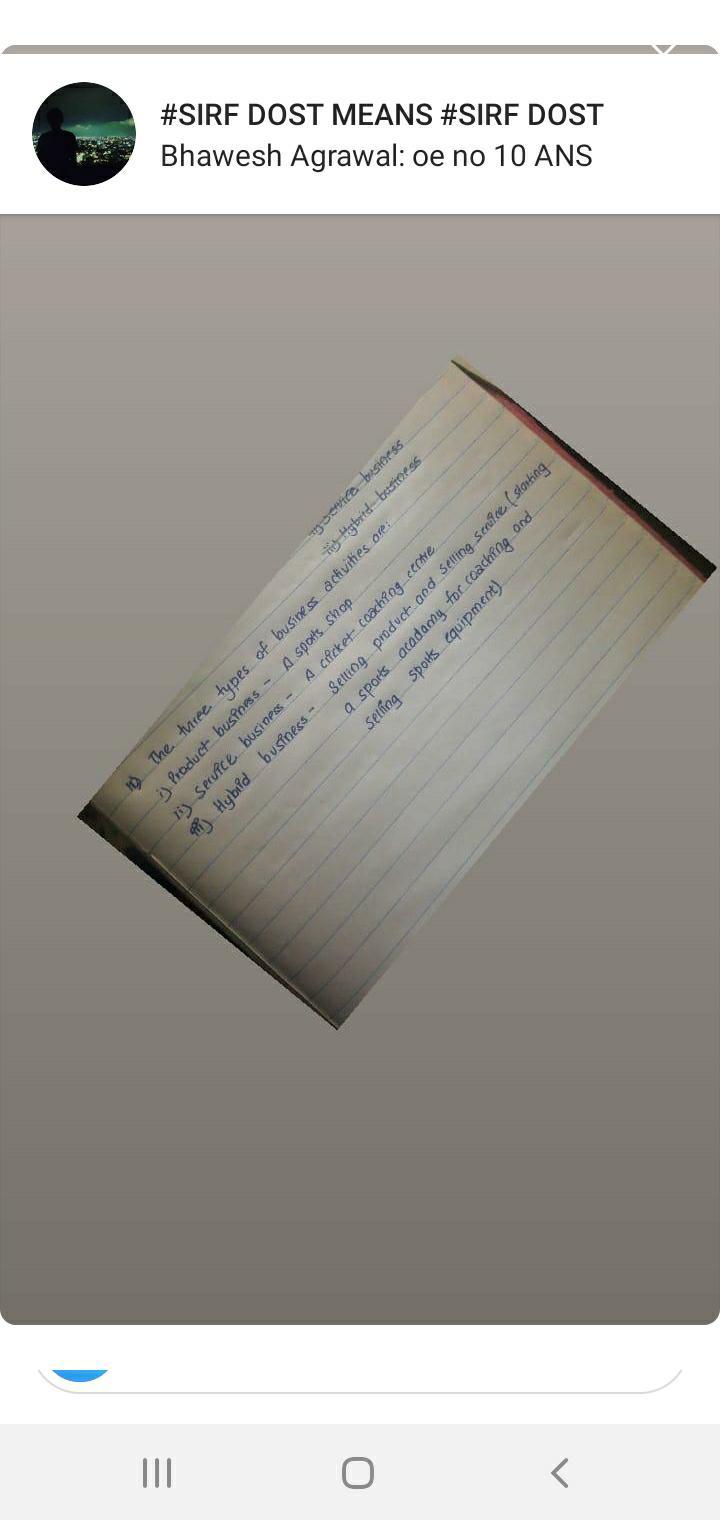 #SIRF DOST MEANS #SIRF DOST
Bhawesh Agrawal: oe no 10 ANS
ii) Service business
iii) Hybrid business
10) The three types of business activities are:
i) Product business - A sports shop
ii) Service business - A cricket coaching centre
iii) Hybrid business - Selling product and selling service (starting
a sports acadamy for coaching and
selling sports equipment)